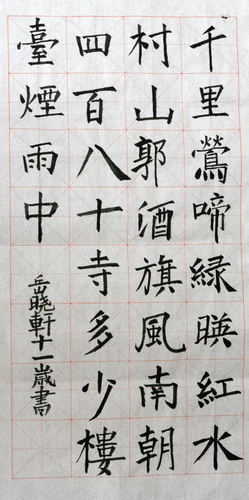 千里鶯啼緑暎紅水
村山郭酒旗風南朝
四百八十寺多少樓
臺煙雨中
岳晓軒十一歲書